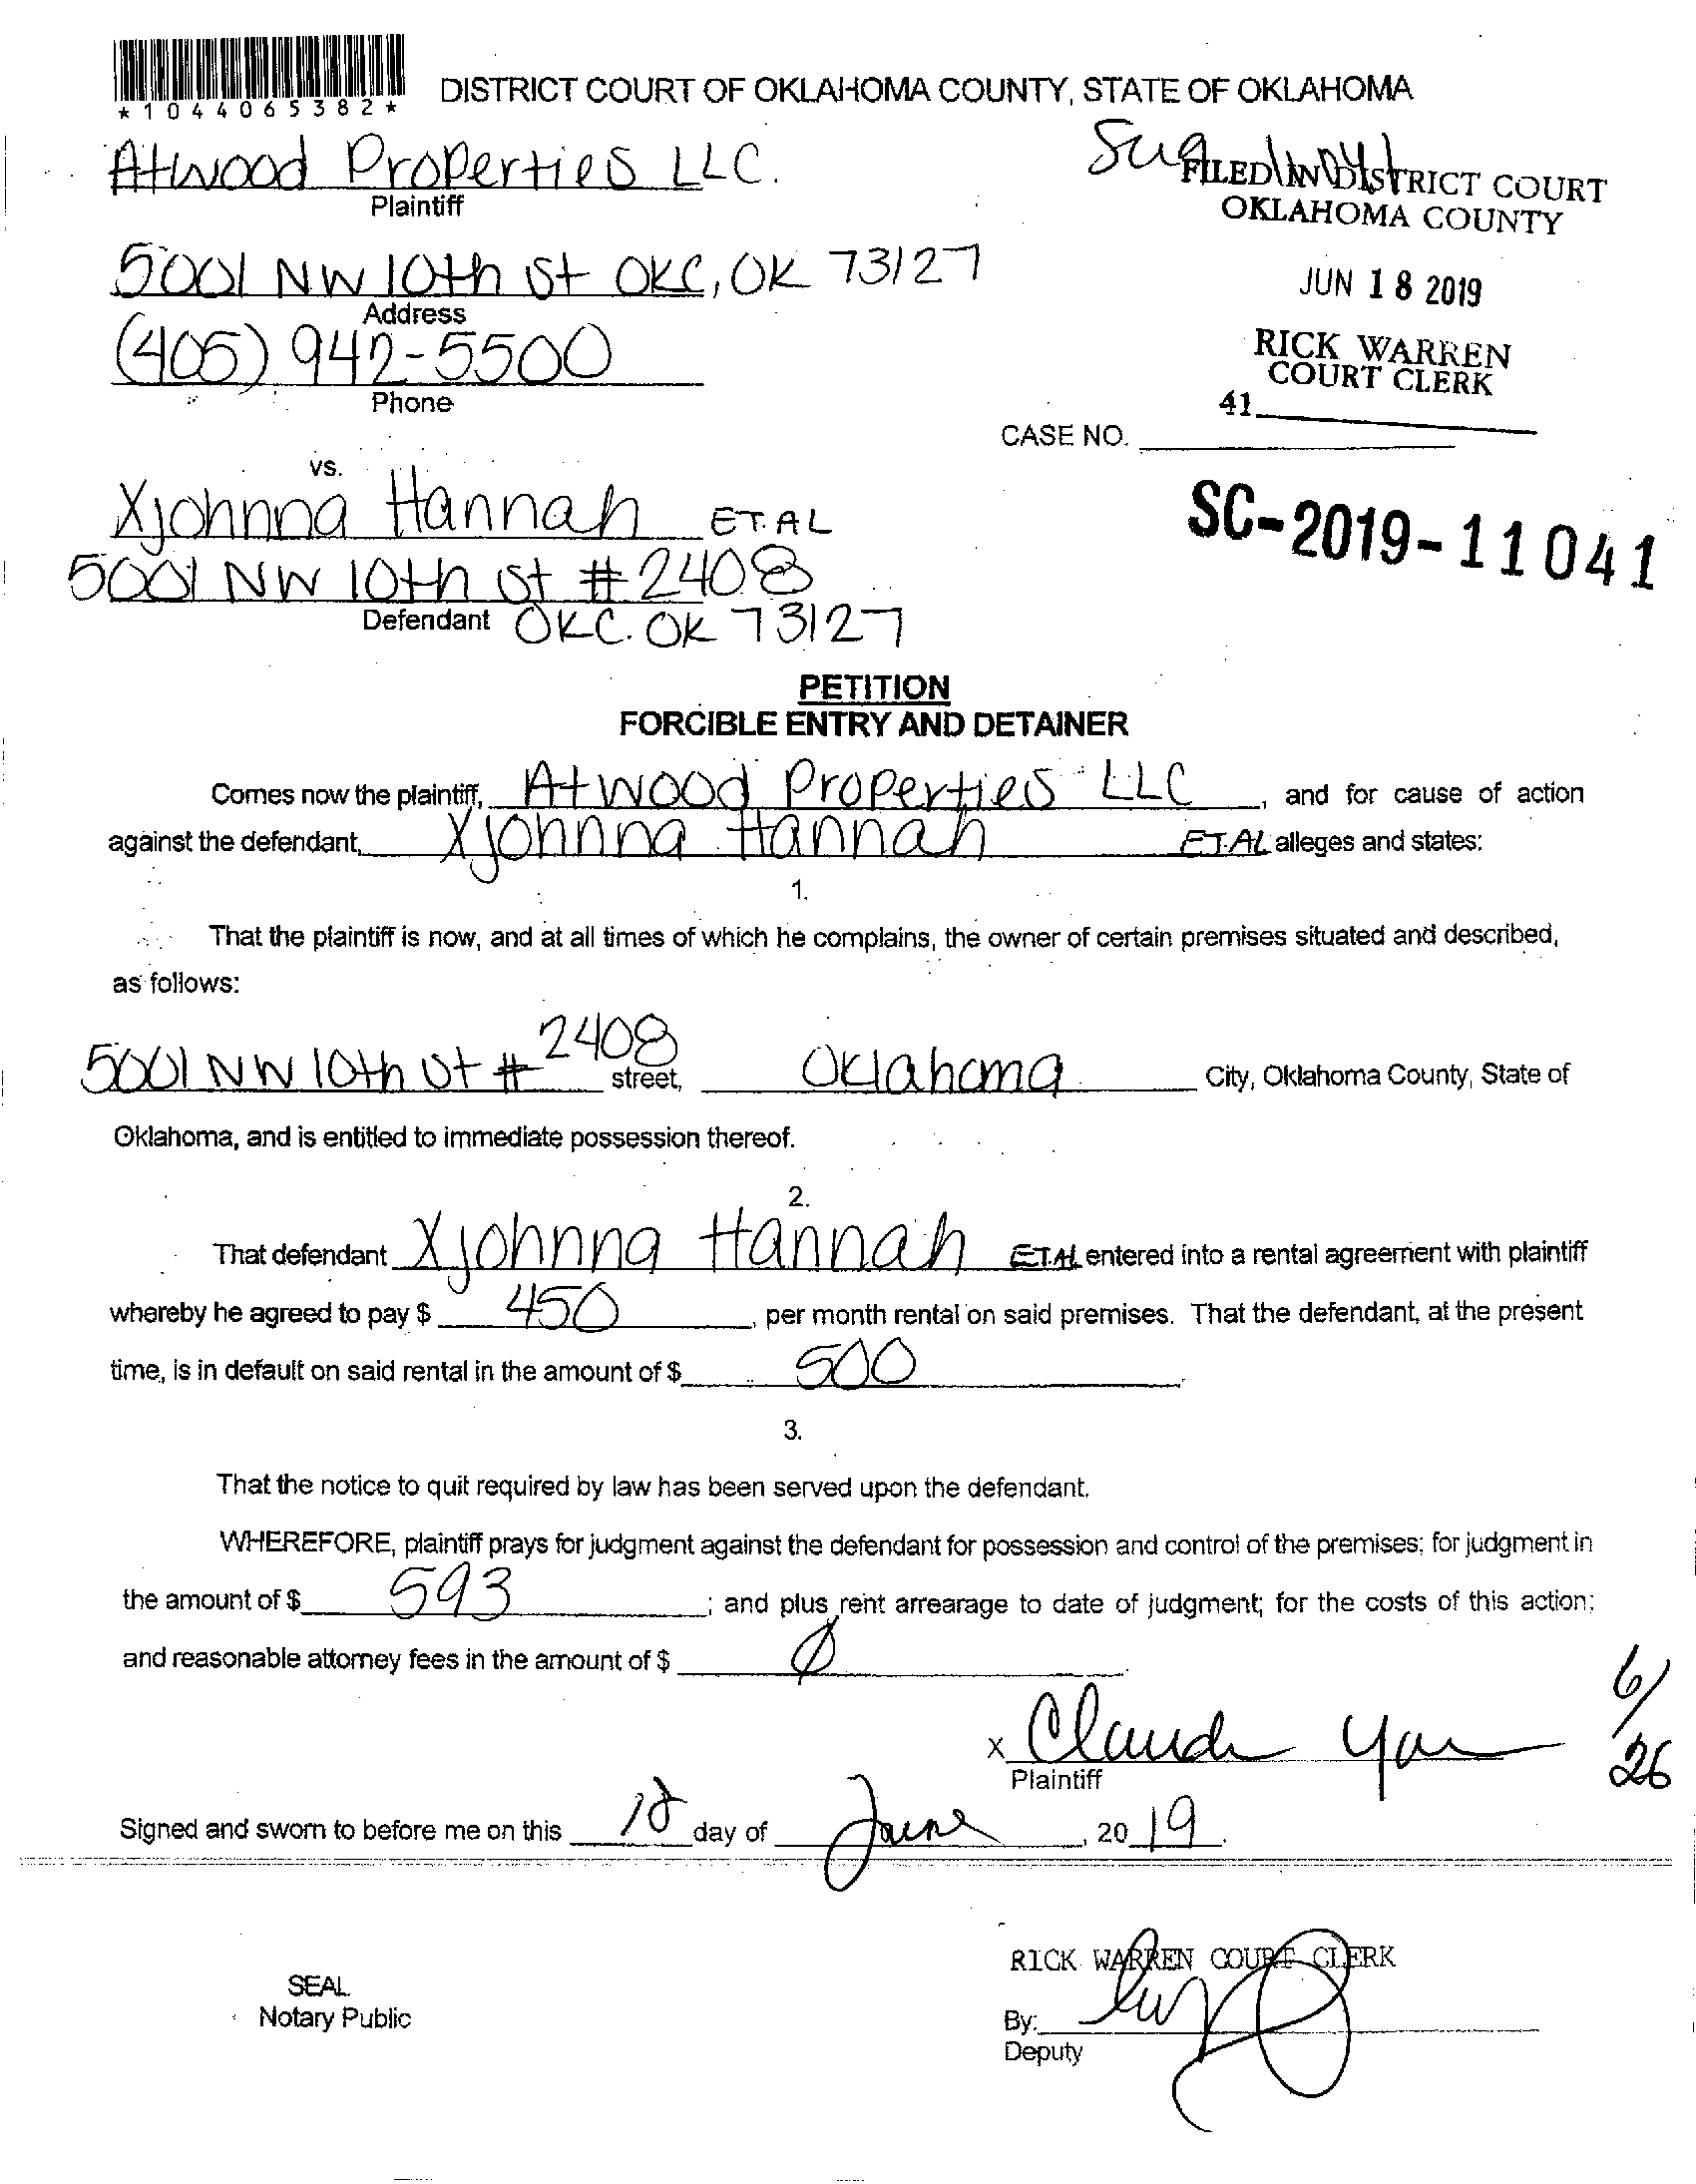 *1044065382*
DISTRICT COURT OF OKLAHOMA COUNTY, STATE OF OKLAHOMA
Atwood Properties LLC.
Plaintiff
FILED IN DISTRICT COURT
OKLAHOMA COUNTY
5001 NW 10th St OKC, OK 73127
Address
JUN 18 2019
(405) 942-5500
Phone
RICK WARREN
COURT CLERK
41
CASE NO.
vs.
Xjohnna Hannah ET. AL
SC-2019-11041
5001 NW 10th St #2408
Defendant OKC. OK 73127
PETITION
FORCIBLE ENTRY AND DETAINER
Comes now the plaintiff, Atwood Properties LLC, and for cause of action
against the defendant, Xjohnna Hannah ET.AL alleges and states:
1.
That the plaintiff is now, and at all times of which he complains, the owner of certain premises situated and described,
as follows:
5001 NW 10th St # 2408 street, Oklahoma City, Oklahoma County, State of
Oklahoma, and is entitled to immediate possession thereof.
2.
That defendant Xjohnna Hannah ET.AL entered into a rental agreement with plaintiff
whereby he agreed to pay $ 450, per month rental on said premises. That the defendant, at the present
time, is in default on said rental in the amount of $ 500
3.
That the notice to quit required by law has been served upon the defendant.
WHEREFORE, plaintiff prays for judgment against the defendant for possession and control of the premises; for judgment in
the amount of $ 593; and plus rent arrearage to date of judgment; for the costs of this action;
and reasonable attorney fees in the amount of $ Ø
6/26
X
Plaintiff
Signed and sworn to before me on this 18 day of June, 2019.
RICK WARREN COURT CLERK
SEAL
Notary Public
By:
Deputy